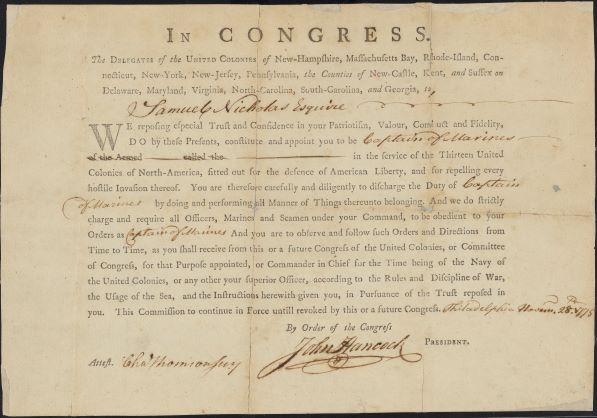 IN CONGRESS.
The DELEGATES of the UNITED COLONIES of New-Hampshire, Massachusetts Bay, Rhode-Island, Con-
necticut, New-York, New-Jersey, Pennsylvania, the Counties of New-Castle, Kent, and Sussex on
Delaware, Maryland, Virginia, North-Carolina, South-Carolina, and Georgia, to
Samuel Nicholas Esquire
WE reposing especial Trust and Confidence in your Patriotism, Valour, Conduct and Fidelity,
DO by these Presents, constitute and appoint you to be Captain of Marines
of the Armed called the in the service of the Thirteen United
Colonies of North-America, fitted out for the defence of American Liberty, and for repelling every
hostile Invasion thereof. You are therefore carefully and diligently to discharge the Duty of Captain
of Marines by doing and performing all Manner of Things thereunto belonging. And we do strictly
charge and require all Officers, Marines and Seamen under your Command, to be obedient to your
Orders as Captain of Marines And you are to observe and follow such Orders and Directions from
Time to Time, as you shall receive from this or a future Congress of the United Colonies, or Committee
of Congress, for that Purpose appointed, or Commander in Chief for the Time being of the Navy of
the United Colonies, or any other your superior Officer, according to the Rules and Discipline of War,
the Usage of the Sea, and the Instructions herewith given you, in Pursuance of the Trust reposed in
you. This Commission to continue in Force until revoked by this or a future Congress. Philadelphia Novem. 28th 1775
By Order of the Congress
John Hancock PRESIDENT.
Attest. Cha Thomson Secy